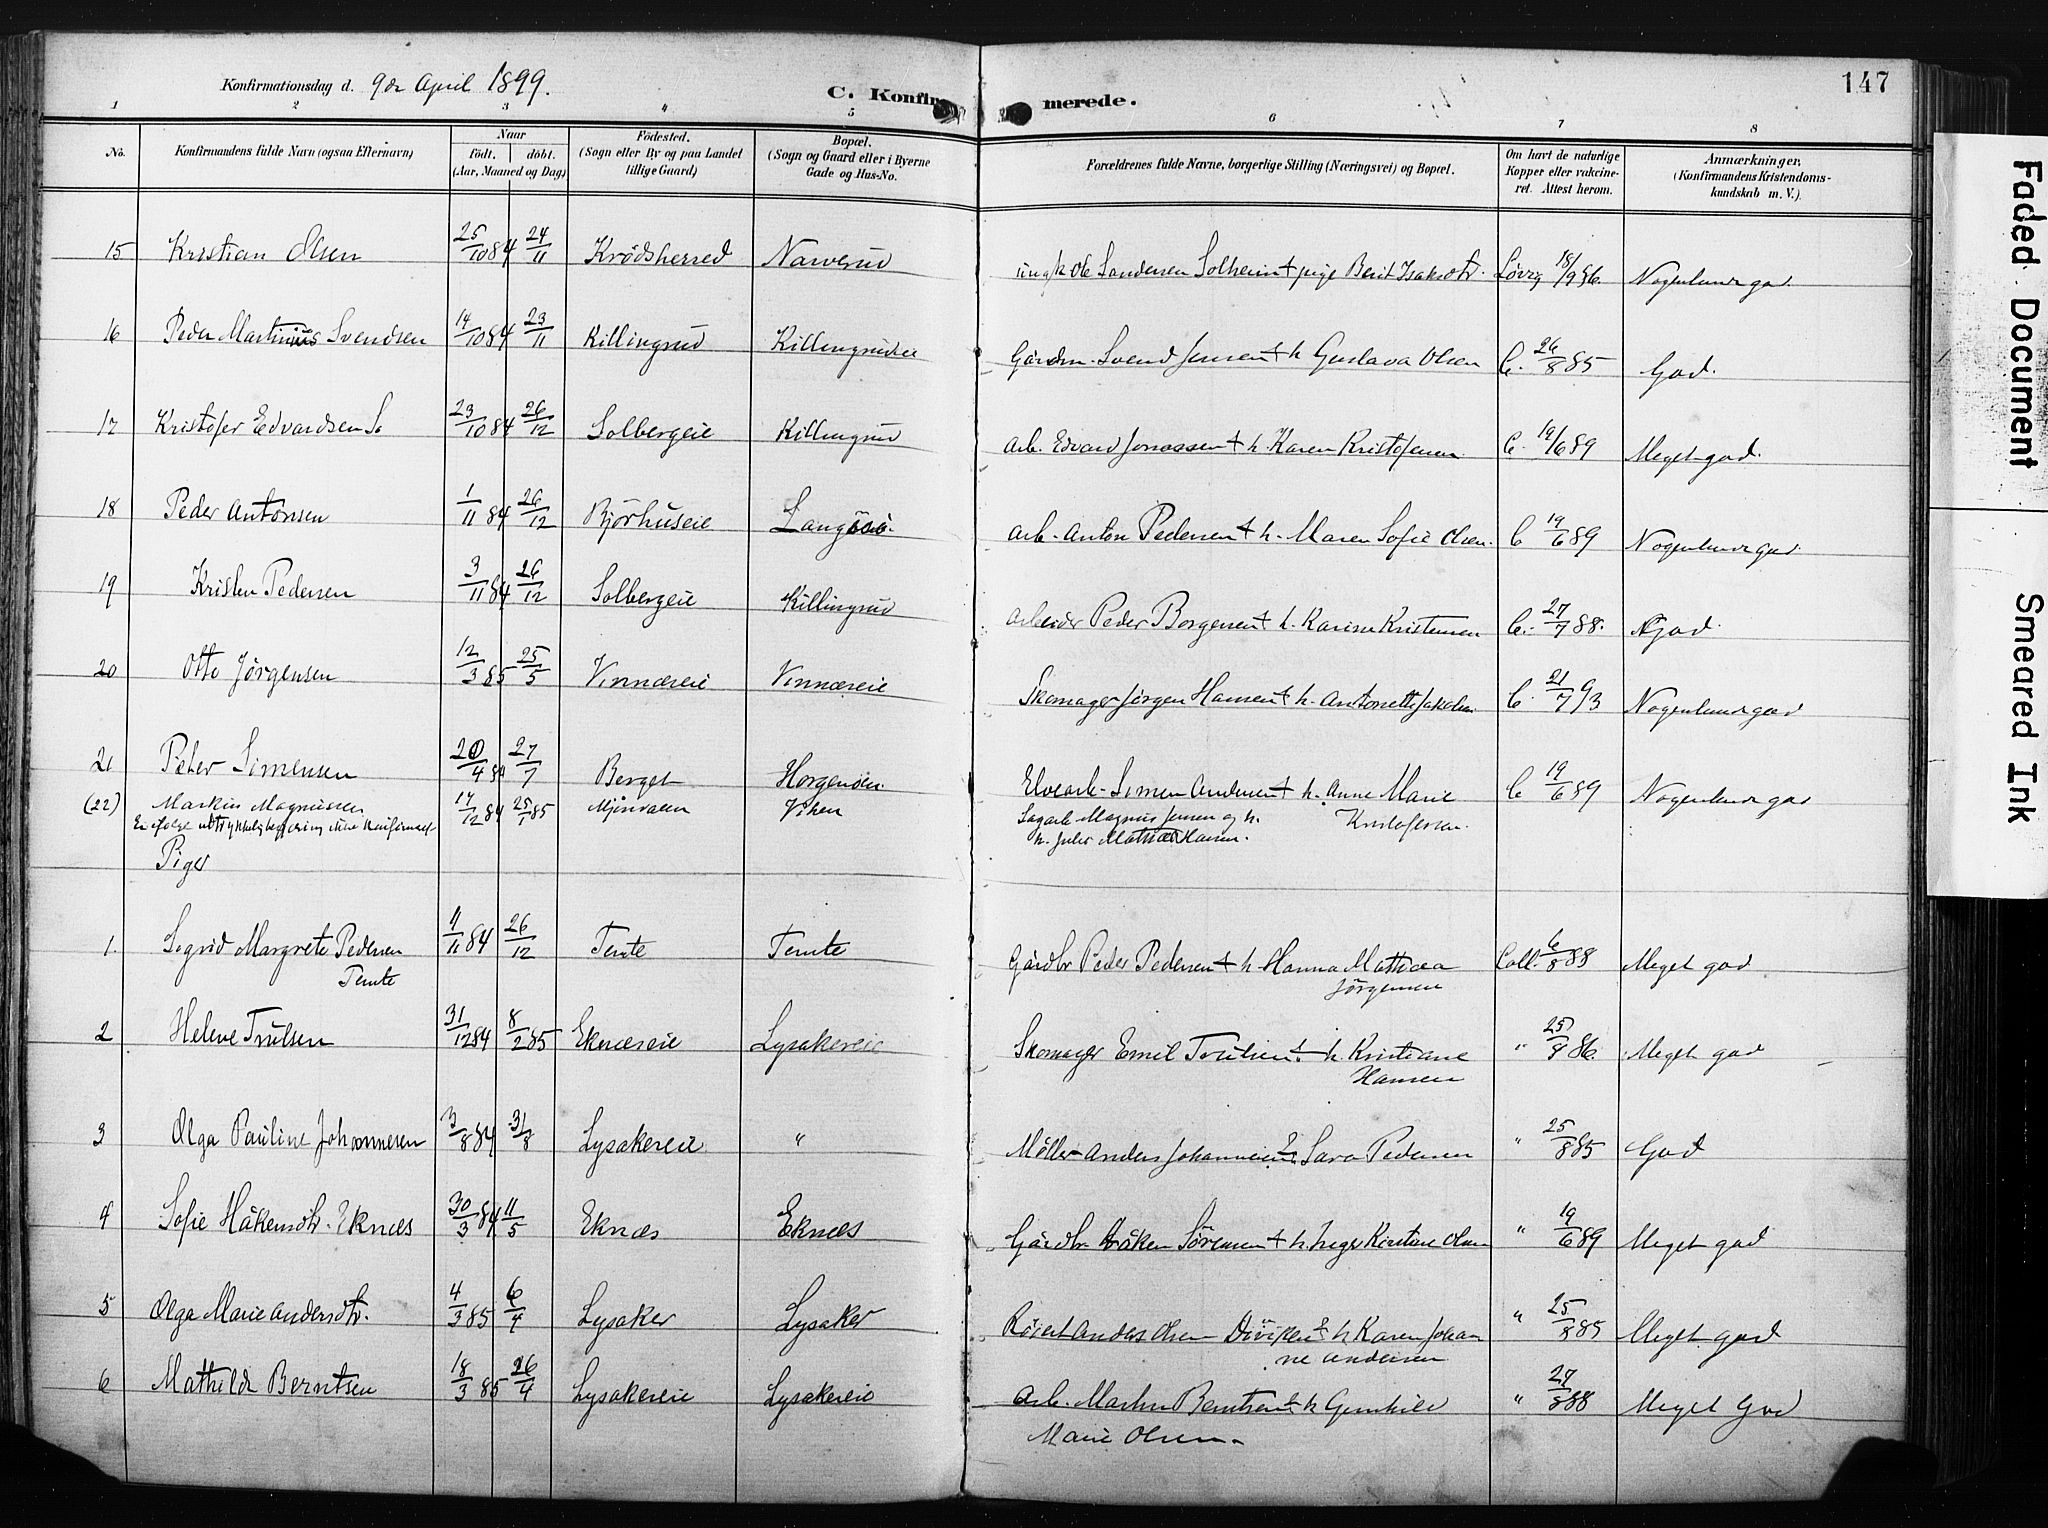 Konfirmationsdag d. 9de April 1899.
C. Konfirmerede.
147
1 2 3 4 5 6 7 8
No.
Konfirmandens fulde Navn (ogsaa Efternavn)
Naar
födt. döbt.
(Aar, Maaned og Dag)
Födested.
(Sogn eller By og paa Landet
tillige Gaard)
Bopæl.
(Sogn og Gaard eller i Byerne
Gade og Hus-No.
Forældrenes fulde Navne, borgerlige Stilling (Næringsvei) og Bopæl.
Om havt de naturlige
Kopper eller vakcine-
ret. Attest herom.
Anmærkninger,
(Konfirmandens Kristendoms-
kundskab m. V.)
15 Kristian Olsen 25/10 84 24/11 Krødsherred Narverud ungk Ole Sandersen Solheim + pige Berit Isaksdtr. Løvig 18/9 86. Nogenlunde god.
16 Peder Martinius Svendsen 14/10 84 23/11 Killingrud Killingrudeie Gårdm. Svend Jensen + h. Gustava Olsen C. 26/8 85 God.
17 Kristofer Edvardsen So 23/10 84 26/12 Solbergeie Killingrud Arb. Edvard Jonassen + h. Karen Kristofersen C. 19/6 89 Meget god.
18 Peder Antonsen 1/11 84 26/12 Bjørhuseie Arb. Anton Pedersen + h. Maren Sofie Olsen. C 19/6 89 Nogenlunde god.
19 Kristen Pedersen 3/11 84 26/12 Solbergeie Killingrud Arbeider Peder Borgersen + h. Karine Kristensen C. 27/7 88. God.
20 Otto Jørgensen 12/3 85 25/5 Vinnæseie Vinnæseie Skomager Jørgen Hansen + h. Antonette Jakobsen C. 21/7 93 Nogenlunde god
21 Peter Simensen 20/4 84 27/7 Berget Horgenseie Elvearb. Simen Andersen + h. Anne Marie C 19/6 89 Nogenlunde god
Kristofersen.
(22) Markus Magnussen 17/12 84 25/1 85 Mjøndalen Viken Sagarb. Magnus Jensen og h.
h. Julie Mathea Hansen.
Piger
1. Sigrid Margrete Pedersen 11/11 84 26/12 Temte Temte Gårdbr Peder Pedersen + h. Hanna Mathea Coll. 6/8 88 Meget god
Temte Jörgensen
2 Helene Trulsen 31/12 84 8/2 85 Eknæseie Lysakereie Skomager Emil Trulsen + h. Kristiane " 25/8 86. Meget god
Hansen
3 Olga Pauline Johannesen 3/8 84 31/8 Lysakereie " Møller Anders Johannesen & Sara Pedersen " 25/8 85 God
4 Sofie Håkensdtr. Eknæs 30/3 84 11/5 Eknæs Eknæs Gårdbr. Håken Sørensen + h. Inger Kirstine Olsen " 19/6 89 Meget god
5 Olga Marie Andersdtr. 4/3 85 6/4 Lysaker Lysaker Anders Olsen & h. Karen Johan " 25/8 85 Meget god
ne Andersen
6 Mathilde Berntsen 18/3 85 26/4 Lysakereie Lysakereie Arb. Martin Berntsen & h. Gunhild " 27/8 88 Meget God
Marie Olsen.
Faded Document
Smeared Ink